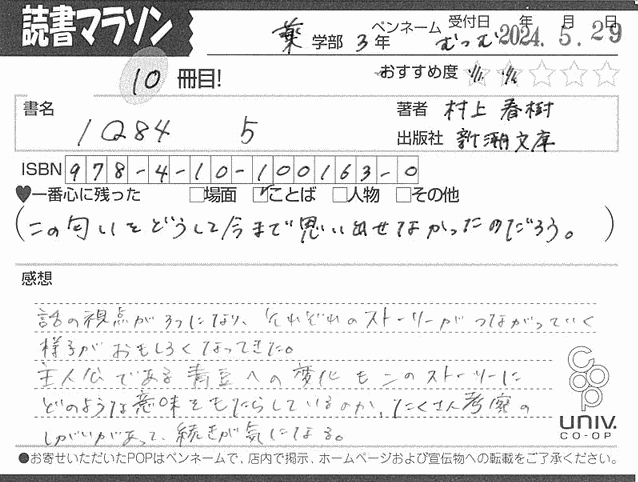 読書マラソン
薬学部 3年 ペンネーム むつむ 受付日 2024年 5月 29日
10 冊目! おすすめ度
書名 1Q84 5
著者 村上 春樹
出版社 新潮文庫
ISBN 978-4-10-100163-0
♥一番心に残った □場面 ☑ことば □人物 □その他
(この匂いをどうして今まで思い出せなかったのだろう。)
感想
話の視点が3つになり、それぞれのストーリーがつながっていく
様子がおもしろくなってきた。
主人公である青豆への変化もこのストーリーに
どのような意味をもたらしているのか、たくさん考察の
しがいがあって、続きが気になる。
coop
UNIV.
CO-OP
●お寄せいただいたPOPはペンネームで、店内で掲示、ホームページおよび宣伝物への転載をご了承ください。